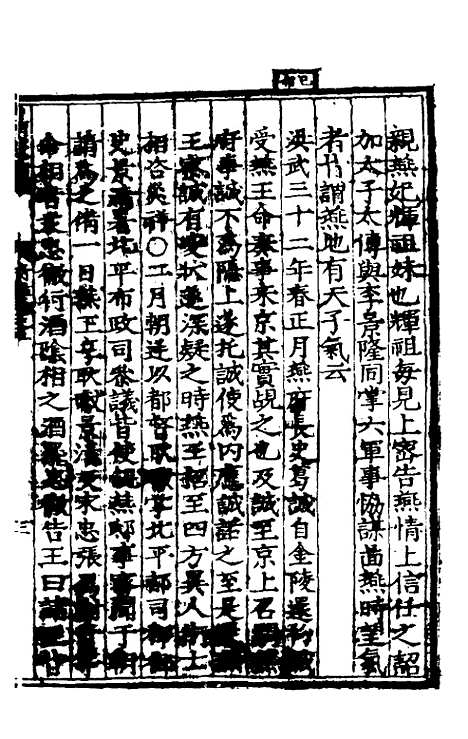 親燕妃輝祖妹也輝祖每見上密告燕情上信任之詔
加太子太傅與李景隆同掌六軍事協謀圖燕時望氣
者竹謂燕地有天子氣云
洪武三十二年春正月燕府長史葛誠自金陵還初誠
受燕王命奏事來京其實覘之也及誠至京上召問燕
府事誠不為隱上遂托誠使為內應誠諾之至是
王察誠有變狀遂深疑之時燕王招至四方異人術士
相咨災祥〇二月朝廷以都督耿瓛掌北平都司
史景清署北平布政司參議皆使覘燕邸事密聞于朝
請為之備一日燕王享耿瓛景清及宋忠張
袁忠徹行酒陰相之酒罷忠徹告王曰